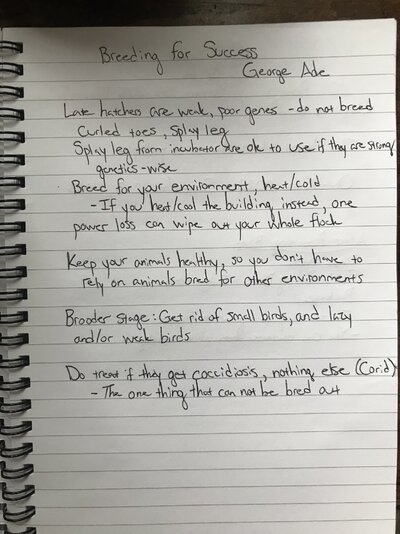 Breeding for Success
George Ade
Late hatchers are weak, poor genes - do not breed
Curled toes, Splay leg
Splay leg from incubator are ok to use if they are strong
genetics-wise
Breed for your environment, heat/cold
- If you heat/cool the building instead, one
power loss can wipe out your whole flock
Keep your animals healthy, so you don't have to
rely on animals bred for other environments
Brooder Stage: Get rid of small birds, and lazy
and/or weak birds
Do treat if they get coccidiosis, nothing else (Corid)
- The one thing that can not be bred out